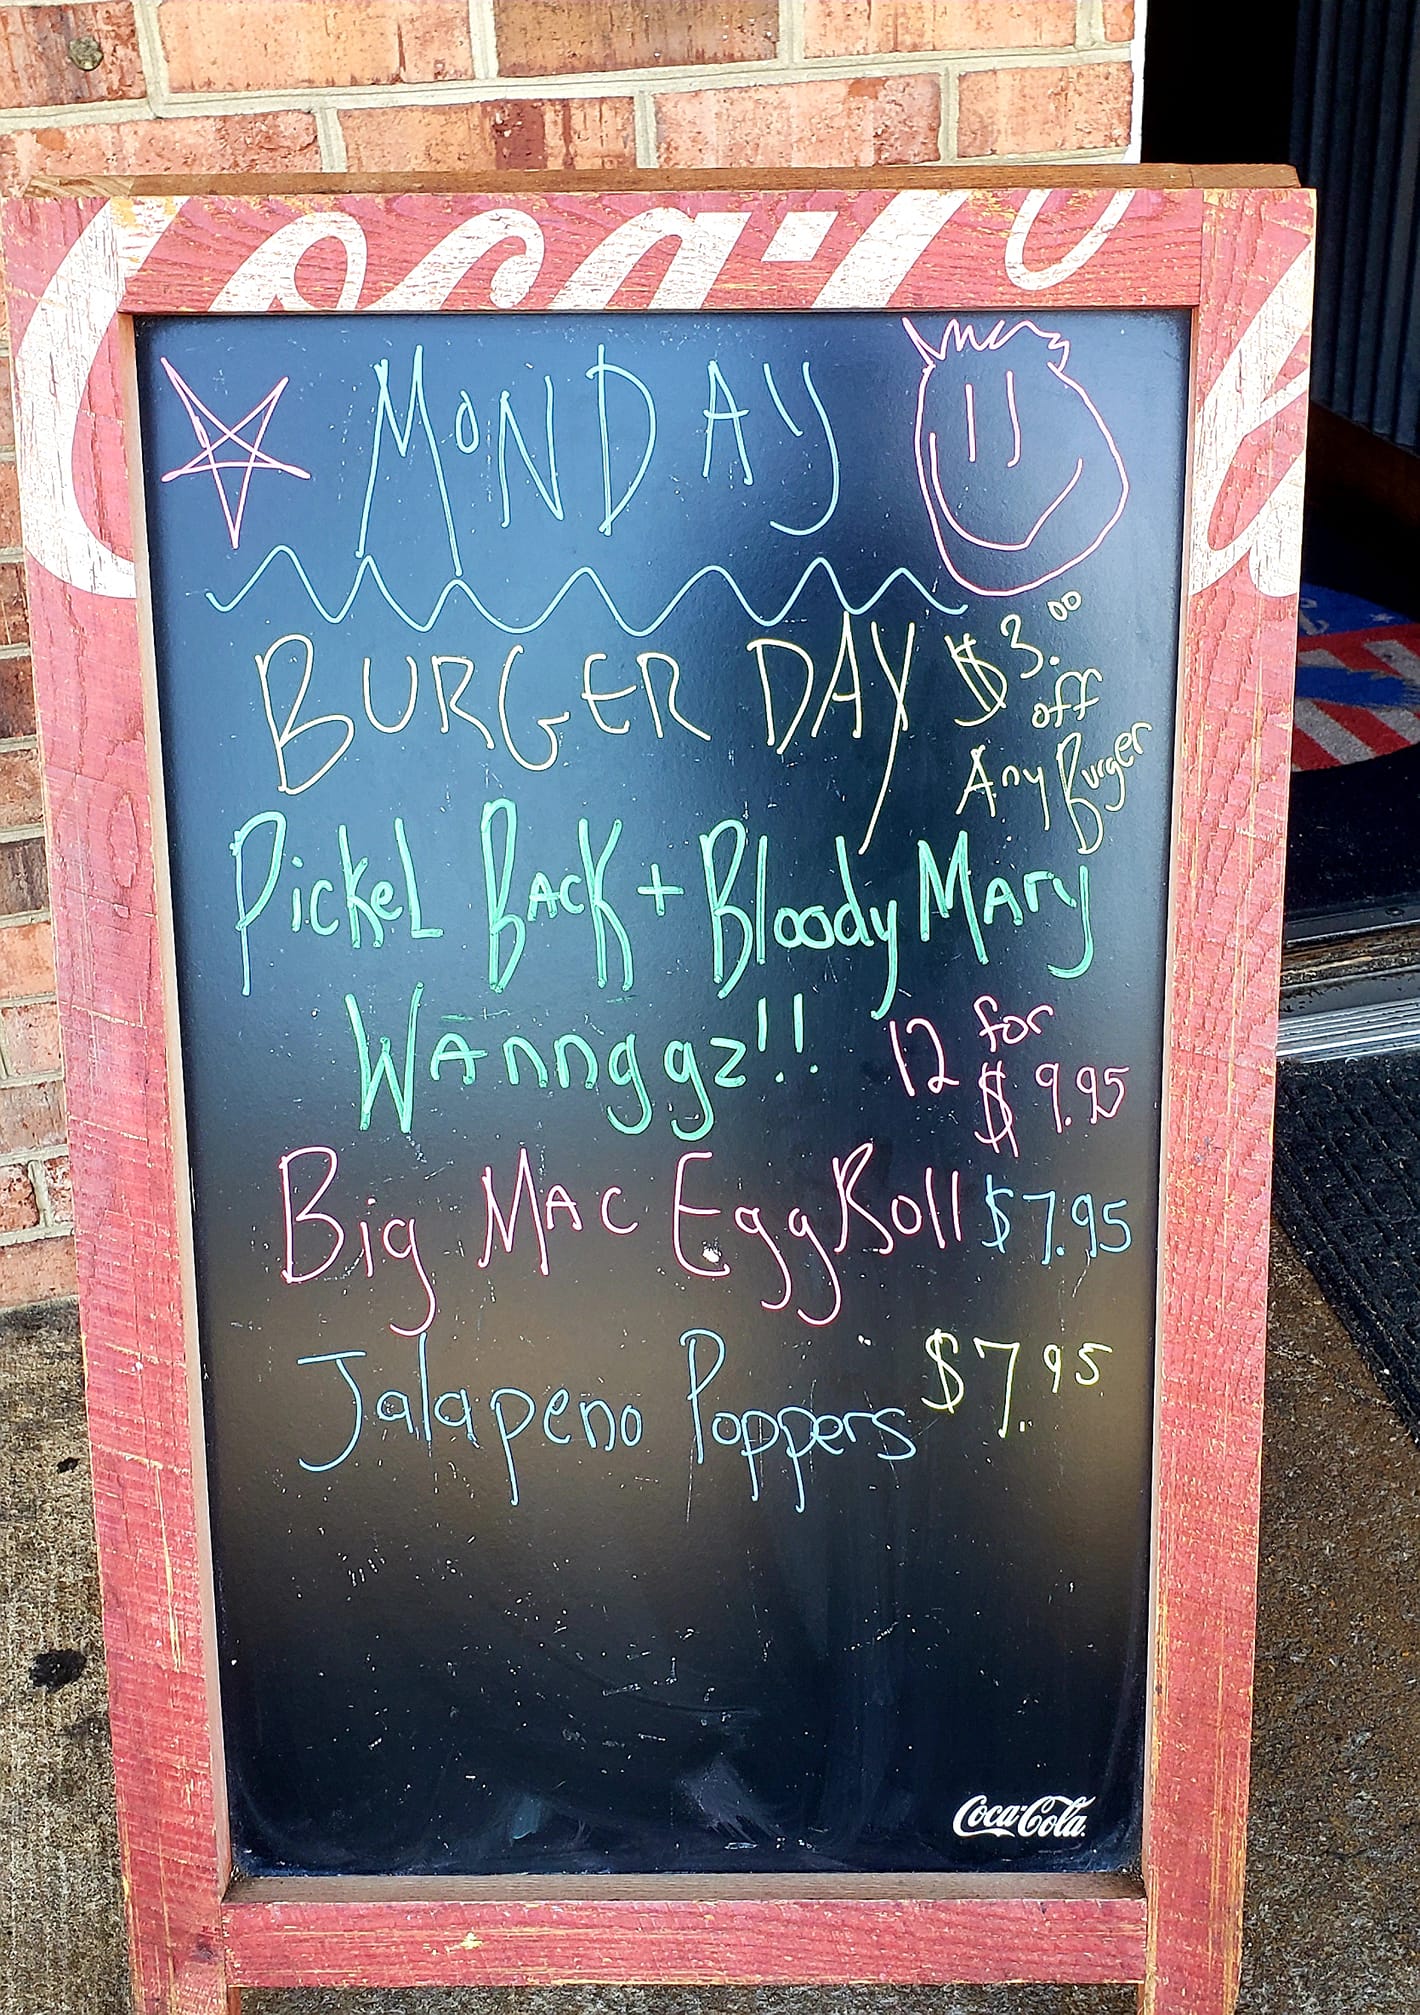 Coca-Cola
MONDAY
BURGER DAY $3.00
off
Any Burger
PickeL BAcK + Bloody MAry
WAnnggz!! 12 for
$9.95
Big MAC Egg Roll $7.95
Jalapeno Poppers $7.95
Coca-Cola